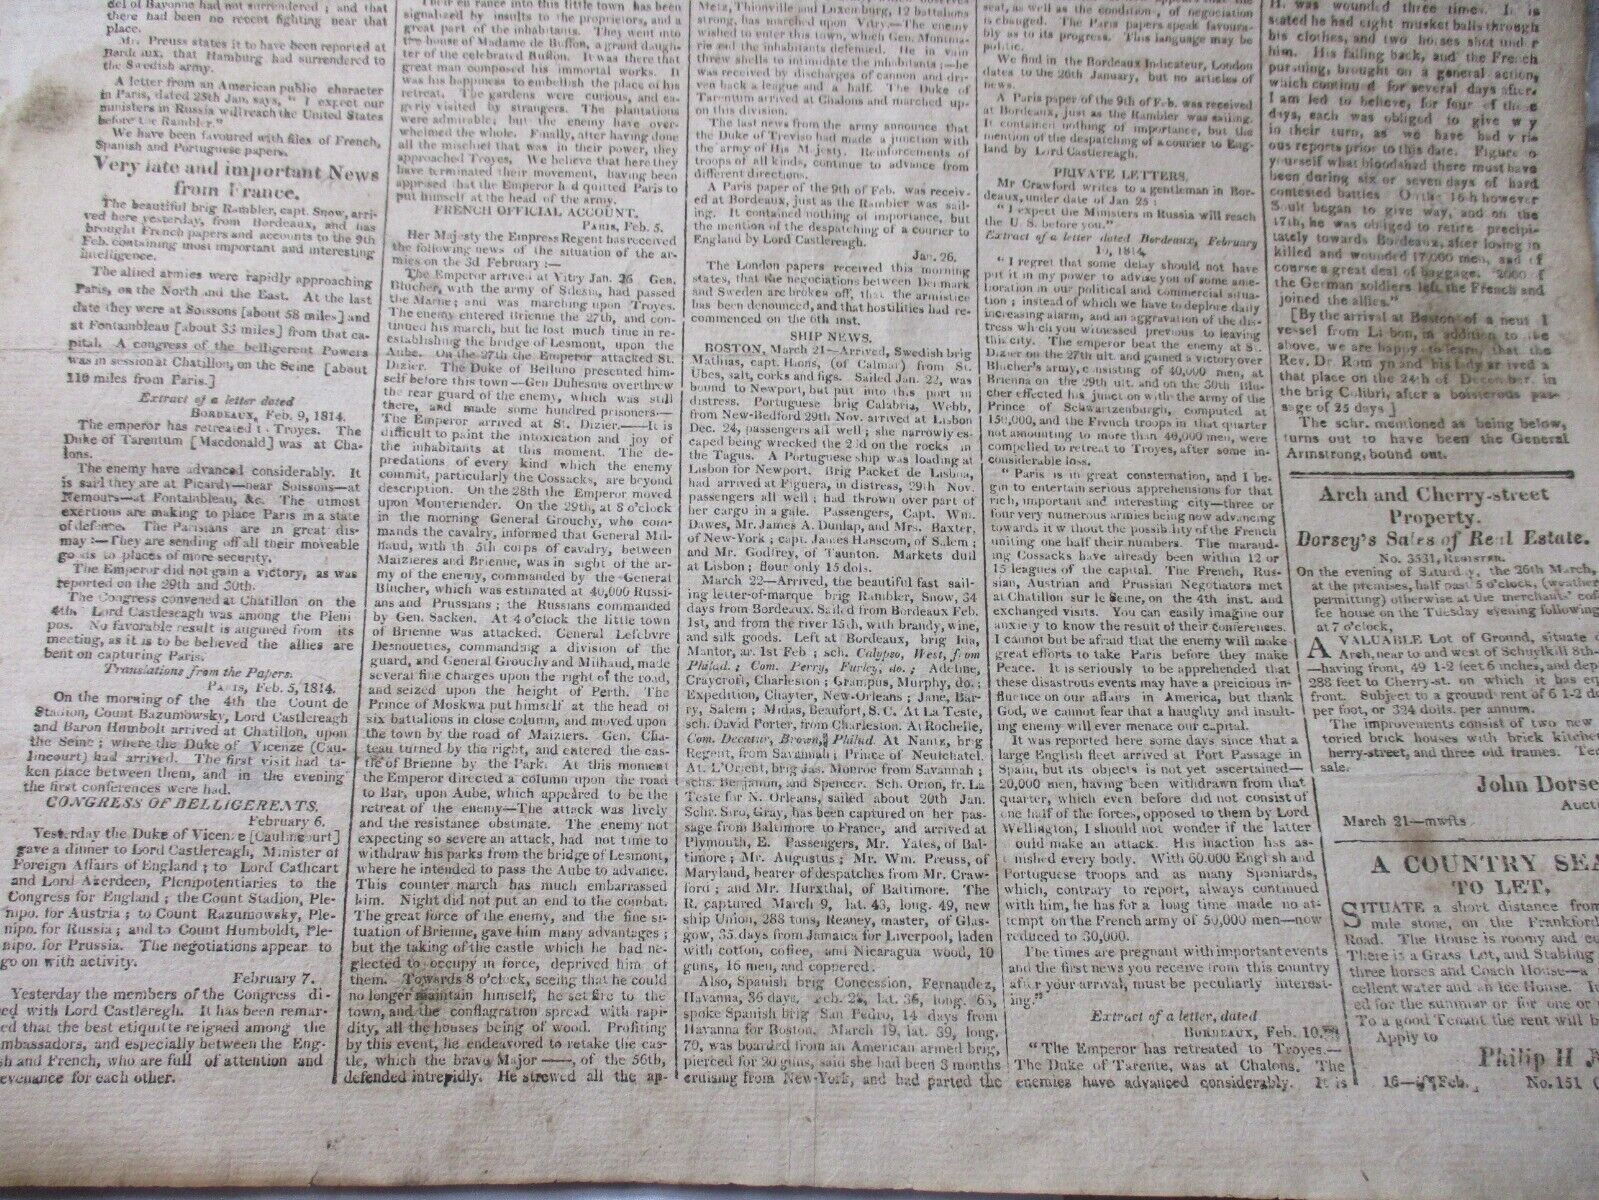 del of Bayonne had not surrendered ; and that
there had been no recent fighting near that
place.
Mr. Preuss states it to have been reported at
Bordeaux, that Hamburg had surrendered to
the Swedish army.
A letter from an American public character
in Paris, dated 25th Jan. says, " I expect our
ministers in Russia will reach the United States
before the Rambler."
We have been favoured with files of French,
Spanish and Portuguese papers.
Very late and important News
from France.
The beautiful brig Rambler, capt. Snow, arri-
ved here yesterday, from Bordeaux, and has
brought French papers and accounts to the 9th
Feb. containing most important and interesting
intelligence.
The allied armies were rapidly approaching
Paris, on the North and the East. At the last
date they were at Soissons [about 58 miles] and
at Fontambleau [about 33 miles] from that ca-
pital. A congress of the belligerent Powers
was in session at Chatillon, on the Seine [about
110 miles from Paris.]
Extract of a letter dated
BORDEAUX, Feb. 9, 1814.
The emperor has retreated to Troyes. The
Duke of Tarentum [Macdonald] was at Cha-
lons.
The enemy have advanced considerably. It
is said they are at Picardy—near Soissons—at
Nemours—at Fontainbleau, &c. The utmost
exertions are making to place Paris in a state
of defence. The Parisians are in great dis-
may :—They are sending off all their moveable
goods to places of more security.
The Emperor did not gain a victory, as was
reported on the 29th and 30th.
The Congress convened at Chatillon on the
4th. Lord Castlereagh was among the Pleni
pos. No favorable result is augured from its
meeting, as it is to be believed the allies are
bent on capturing Paris.
Translations from the Papers.
PARIS, Feb. 5, 1814.
On the morning of the 4th the Count de
Stadion, Count Bazumowsky, Lord Castlereagh
and Baron Humbolt arrived at Chatillon, upon
the Seine ; where the Duke of Vicenze (Cau-
lincourt) had arrived. The first visit had ta-
ken place between them, and in the evening
the first conferences were had.
CONGRESS OF BELLIGERENTS.
February 6.
Yesterday the Duke of Vicenze [Caulincourt]
gave a dinner to Lord Castlereagh, Minister of
Foreign Affairs of England ; to Lord Cathcart
and Lord Aberdeen, Plenipotentiaries to the
Congress for England ; the Count Stadion, Ple-
nipo. for Austria ; to Count Razumowsky, Ple-
nipo. for Russia ; and to Count Humboldt, Ple-
nipo. for Prussia. The negotiations appear to
go on with activity.
February 7.
Yesterday the members of the Congress di-
ed with Lord Castleregh. It has been remar-
ed that the best etiquitte reigned among the
mbassadors, and especially between the Eng-
sh and French, who are full of attention and
evenance for each other.
Their entrance into this little town has been
signalized by insults to the proprietors, and a
great part of the inhabitants. They went into
the house of Madame de Buffon, a grand daugh-
ter of the celebrated Buffon. It was there that
great man composed his immortal works. It
was his happiness to embellish the place of his
retreat. The gardens were curious, and ea-
gerly visited by strangers. The plantations
were admirable; but the enemy have over-
whelmed the whole. Finally, after having done
all the mischief that was in their power, they
approached Troyes. We believe that here they
have terminated their movement, having been
apprised that the Emperor had quitted Paris to
put himself at the head of the army.
FRENCH OFFICIAL ACCOUNT.
PARIS, Feb. 5.
Her Majesty the Empress Regent has received
the following news of the situation of the ar-
mies on the 3d February :—
The Emperor arrived at Vitry Jan. 26 Gen.
Blucher, with the army of Silesia, had passed
the Marne; and was marching upon Troyes.
The enemy entered Brienne the 27th, and con-
tinued his march, but he lost much time in re-
establishing the bridge of Lesmont, upon the
Aube. On the 27th the Emperor attacked St.
Dizier. The Duke of Belluno presented him-
self before this town—Gen Duhesme overthrew
the rear guard of the enemy, which was still
there, and made some hundred prisoners—
The Emperor arrived at St. Dizier.—It is
difficult to paint the intoxication and joy of
the inhabitants at this moment. The de-
predations of every kind which the enemy
commit, particularly the Cossacks, are beyond
description. On the 28th the Emperor moved
upon Montierender. On the 29th, at 8 o'clock
in the morning General Grouchy, who com-
mands the cavalry, informed that General Mil-
haud, with th 5th corps of cavalry, between
Maizieres and Brienne, was in sight of the ar-
my of the enemy, commanded by the General
Blucher, which was estimated at 40,000 Russi-
ans and Prussians ; the Russians commanded
by Gen. Sacken. At 4 o'clock the little town
of Brienne was attacked. General Lefebvre
Desnouettes, commanding a division of the
guard, and General Grouchy and Milhaud, made
several fine charges upon the right of the road,
and seized upon the height of Perth. The
Prince of Moskwa put himself at the head of
six battalions in close column, and moved upon
the town by the road of Maiziers. Gen. Cha-
teau turned by the right, and entered the cas-
tle of Brienne by the Park. At this moment
the Emperor directed a column upon the road
to Bar, upon Aube, which appeared to be the
retreat of the enemy—The attack was lively
and the resistance obstinate. The enemy not
expecting so severe an attack, had not time to
withdraw his parks from the bridge of Lesmont,
where he intended to pass the Aube to advance.
This counter march has much embarrassed
him. Night did not put an end to the combat.
The great force of the enemy, and the fine si-
tuation of Brienne, gave him many advantages ;
but the taking of the castle which he had ne-
glected to occupy in force, deprived him of
them. Towards 8 o'clock, seeing that he could
no longer maintain himself, he set fire to the
town, and the conflagration spread with rapi-
dity, all the houses being of wood. Profiting
by this event, he endeavored to retake the cas-
tle, which the brave Major ——, of the 56th,
defended intrepidly. He strewed all the ap-
Metz, Thionville and Luxemburg, 12 battalions
strong, has marched upon Vitry—The enemy
wished to enter this town, which Gen. Montmo-
rie and the inhabitants defended. He in vain
threw shells to intimidate the inhabitants ;—he
was received by discharges of cannon and dri-
ven back a league and a half. The Duke of
Tarentum arrived at Chalons and marched up-
on this division.
The last news from the army announce that
the Duke of Treviso had made a junction with
the army of His Majesty. Reinforcements of
troops of all kinds, continue to advance from
different directions.
A Paris paper of the 9th of Feb. was receiv-
ed at Bordeaux, just as the Rambler was sai-
ling. It contained nothing of importance, but
the mention of the despatching of a courier to
England by Lord Castlereagh.
Jan. 26.
The London papers received this morning
states, that the negotiations between Denmark
and Sweden are broken off, that the armistice
has been denounced, and that hostilities had re-
commenced on the 6th inst.
SHIP NEWS.
BOSTON, March 21—Arrived, Swedish brig
Mathias, capt. Hans, (of Calmar) from St.
Ubes, salt, corks and figs. Sailed Jan. 22, was
bound to Newport, but put into this port in
distress. Portuguese brig Calabria, Webb,
from New-Bedford 29th Nov. arrived at Lisbon
Dec. 24, passengers all well ; she narrowly es-
caped being wrecked the 23d on the rocks in
the Tagus. A Portuguese ship was loading at
Lisbon for Newport. Brig Packet de Lisboa,
had arrived at Figuera, in distress, 29th Nov.
passengers all well ; had thrown over part of
her cargo in a gale. Passengers, Capt. Wm.
Dawes, Mr. James A. Dunlap, and Mrs. Baxter,
of New-York ; capt. James Hanscom, of Salem ;
and Mr. Godfrey, of Taunton. Markets dull
at Lisbon ; flour only 15 dols.
March 22—Arrived, the beautiful fast sail-
ing letter-of-marque brig Rambler, Snow, 34
days from Bordeaux. Sailed from Bordeaux Feb.
1st, and from the river 15th, with brandy, wine,
and silk goods. Left at Bordeaux, brig Ida,
Mantor, ar. 1st Feb ; sch. Calypso, West, from
Philad. ; Com. Perry, Furley, do. ; Adeline,
Craycroft, Charleston ; Grampus, Murphy, do. ;
Expedition, Chayter, New-Orleans ; Jane, Bar-
ry, Salem ; Midas, Beaufort, S. C. At La Teste,
sch. David Porter, from Charleston. At Rochelle,
Com. Decatur, Brown, Philad. At Nantz, brig
Regent, from Savannah ; Prince of Neufchatel.
At. L'Orient, brig Jas. Monroe from Savannah ;
schs. Benjamin, and Spencer. Sch. Orion, fr. La
Teste for N. Orleans, sailed about 20th Jan.
Schr. Siro, Gray, has been captured on her pas-
sage from Baltimore to France, and arrived at
Plymouth, E. Passengers, Mr. Yates, of Bal-
timore ; Mr. Augustus ; Mr. Wm. Preuss, of
Maryland, bearer of despatches from Mr. Craw-
ford ; and Mr. Hurxthal, of Baltimore. The
R. captured March 9, lat. 43, long. 49, new
ship Union, 283 tons, Reaney, master, of Glas-
gow, 35 days from Jamaica for Liverpool, laden
with cotton, coffee, and Nicaragua wood, 10
guns, 16 men, and coppered.
Also, Spanish brig Concession, Fernandez,
Havanna, 36 days, Feb. 28, lat. 36, long. 65,
spoke Spanish brig San Pedro, 14 days from
Havanna for Boston. March 19, lat. 39, long.
70, was boarded from an American armed brig,
pierced for 20 guns, said she had been 3 months
cruising from New-York, and had parted the
seat, as well as the condition, of negociation
is changed. The Paris papers speak favoura-
bly as to its progress. This language may be
politic.
We find in the Bordeaux Indicateur, London
dates to the 26th January, but no articles of
news.
A Paris paper of the 9th of Feb. was received
at Bordeaux, just as the Rambler was sailing.
It contained nothing of importance, but the
mention of the despatching of a courier to Eng-
land by Lord Castlereagh.
PRIVATE LETTERS.
Mr Crawford writes to a gentleman in Bor-
deaux, under date of Jan 25 :
" I expect the Ministers in Russia will reach
the U. S. before you."
Extract of a letter dated Bordeaux, February
15, 1814.
" I regret that some delay should not have
put it in my power to advise you of some ame-
lioration in our political and commercial situa-
tion ; instead of which we have to deplore daily
increasing alarm, and an aggravation of the dis-
tress which you witnessed previous to leaving
this city. The emperor beat the enemy at St.
Dizier on the 27th ult. and gained a victory over
Blucher's army, consisting of 40,000 men, at
Brienna on the 29th ult. and on the 30th Blu-
cher effected his junction with the army of the
Prince of Schwartzenburgh, computed at
150,000, and the French troops in that quarter
not amounting to more than 40,000 men, were
compelled to retreat to Troyes, after some in-
considerable loss.
"Paris is in great consternation, and I be-
gin to entertain serious apprehensions for that
rich, important and interesting city—three or
four very numerous armies being now advancing
towards it without the possibility of the French
uniting one half their numbers. The maraud-
ing Cossacks have already been within 12 or
15 leagues of the capital. The French, Rus-
sian, Austrian and Prussian Negotiators met
at Chatillon sur le Seine, on the 4th inst. and
exchanged visits. You can easily imagine our
anxiety to know the result of their conferences.
I cannot but be afraid that the enemy will make
great efforts to take Paris before they make
Peace. It is seriously to be apprehended that
these disastrous events may have a precious in-
fluence on our affairs in America, but thank
God, we cannot fear that a haughty and insult-
ing enemy will ever menace our capital.
It was reported here some days since that a
large English fleet arrived at Port Passage in
Spain, but its objects is not yet ascertained—
20,000 men, having been withdrawn from that
quarter, which even before did not consist of
one half of the forces, opposed to them by Lord
Wellington, I should not wonder if the latter
could make an attack. His inaction has as-
nished every body. With 60.000 English and
Portuguese troops and as many Spaniards,
which, contrary to report, always continued
with him, he has for a long time made no at-
tempt on the French army of 50,000 men—now
reduced to 30,000.
The times are pregnant with important events
and the first news you receive from this country
after your arrival, must be peculiarly interest-
ing."
Extract of a letter, dated
BORDEAUX, Feb. 10.
"The Emperor has retreated to Troyes.—
The Duke of Tarente, was at Chalons. The
enemies have advanced considerably. It is
H. was wounded three times. It is
stated he had eight musket balls through
his clothes, and two horses shot under
him. His falling back, and the French
pursuing, brought on a general action,
which continued for several days after.
I am led to believe, for four of those
days, each was obliged to give way
in their turn, as we have had vario
ous reports prior to this date. Figure to
yourself what bloodshed there must have
been during six or seven days of hard
contested battles On the 16th however
Soult began to give way, and on the
17th, he was obliged to retire precipi-
tately towards Bordeaux, after losing in
killed and wounded 17,000 men, and of
course a great deal of baggage. 2000 of
the German soldiers left the French and
joined the allies."
[By the arrival at Boston of a neutral
vessel from Lisbon, in addition to the
above, we are happy to learn, that the
Rev. Dr. Romeyn and his lady arrived a
that place on the 24th of December, in
the brig Colibri, after a boisterous pas-
sage of 25 days ]
The schr. mentioned as being below,
turns out to have been the General
Armstrong, bound out.
Arch and Cherry-street
Property.
Dorsey's Sales of Real Estate.
No. 3531, REGISTER.
On the evening of Saturday, the 26th March,
at the premises, half past 5 o'clock, (weather
permitting) otherwise at the merchants' cof-
fee house on the Tuesday evening following
at 7 o'clock,
A VALUABLE Lot of Ground, situate o
Arch, near to and west of Schuylkill 8th-
—having front, 49 1-2 feet 6 inches, and dep
288 feet to Cherry-st. on which it has eq
front. Subject to a ground rent of 6 1-2 do
per foot, or 324 dolls. per annum.
The improvements consist of two new
toried brick houses with brick kitchen
herry-street, and three old frames. Te
sale.
John Dorse
Auct
March 21—mwfts
A COUNTRY SEA
TO LET,
SITUATE a short distance from
mile stone, on the Frankford
Road. The House is roomy and co
There is a Grass Lot, and Stabling
three horses and Coach House—a
cellent water and an Ice House.
ed for the summer or for one or
To a good Tenant the rent will b
Apply to
Philip H
16— Feb. No. 151